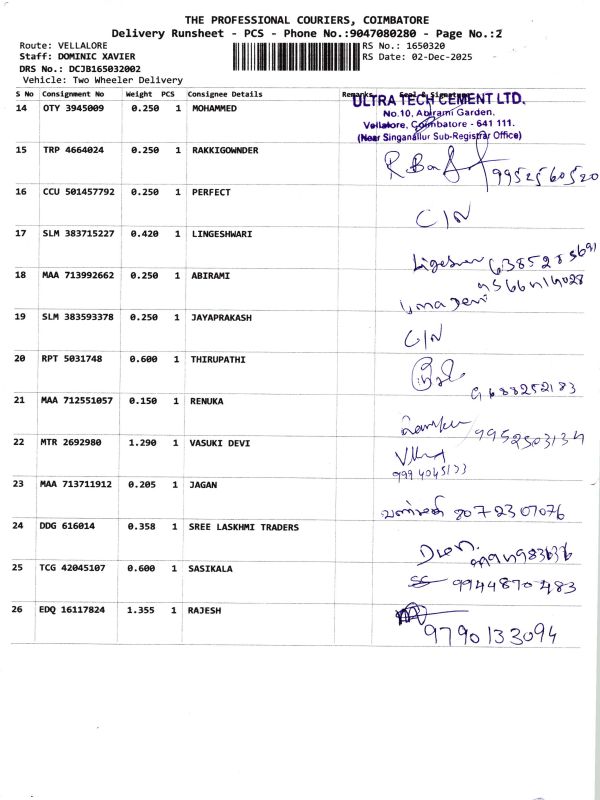 THE PROFESSIONAL COURIERS, COIMBATORE
Delivery Runsheet - PCS - Phone No.:9047080280 - Page No.:2
Route: VELLALORE
RS No.: 1650320
Staff: DOMINIC XAVIER
RS Date: 02-Dec-2025
DRS No.: DCJB165032002
Vehicle: Two Wheeler Delivery
S No Consignment No Weight PCS Consignee Details Remarks Seal & Signature
14 OTY 3945009 0.250 1 MOHAMMED
ULTRA TECH CEMENT LTD.
No.10, Abirami Garden,
Vellalore, Coimbatore - 641 111.
(Near Singanallur Sub-Registrar Office)
15 TRP 4664024 0.250 1 RAKKIGOWNDER 9952560520
16 CCU 501457792 0.250 1 PERFECT C/N
17 SLM 383715227 0.420 1 LINGESHWARI 6385285691
18 MAA 713992662 0.250 1 ABIRAMI Uma Devi
19 SLM 383593378 0.250 1 JAYAPRAKASH C/N
20 RPT 5031748 0.600 1 THIRUPATHI 9688252183
21 MAA 712551057 0.150 1 RENUKA 9952503134
22 MTR 2692980 1.290 1 VASUKI DEVI
23 MAA 713711912 0.205 1 JAGAN 8072307076
24 DDG 616014 0.358 1 SREE LASKHMI TRADERS
25 TCG 42045107 0.600 1 SASIKALA 9944870483
26 EDQ 16117824 1.355 1 RAJESH 9790133094